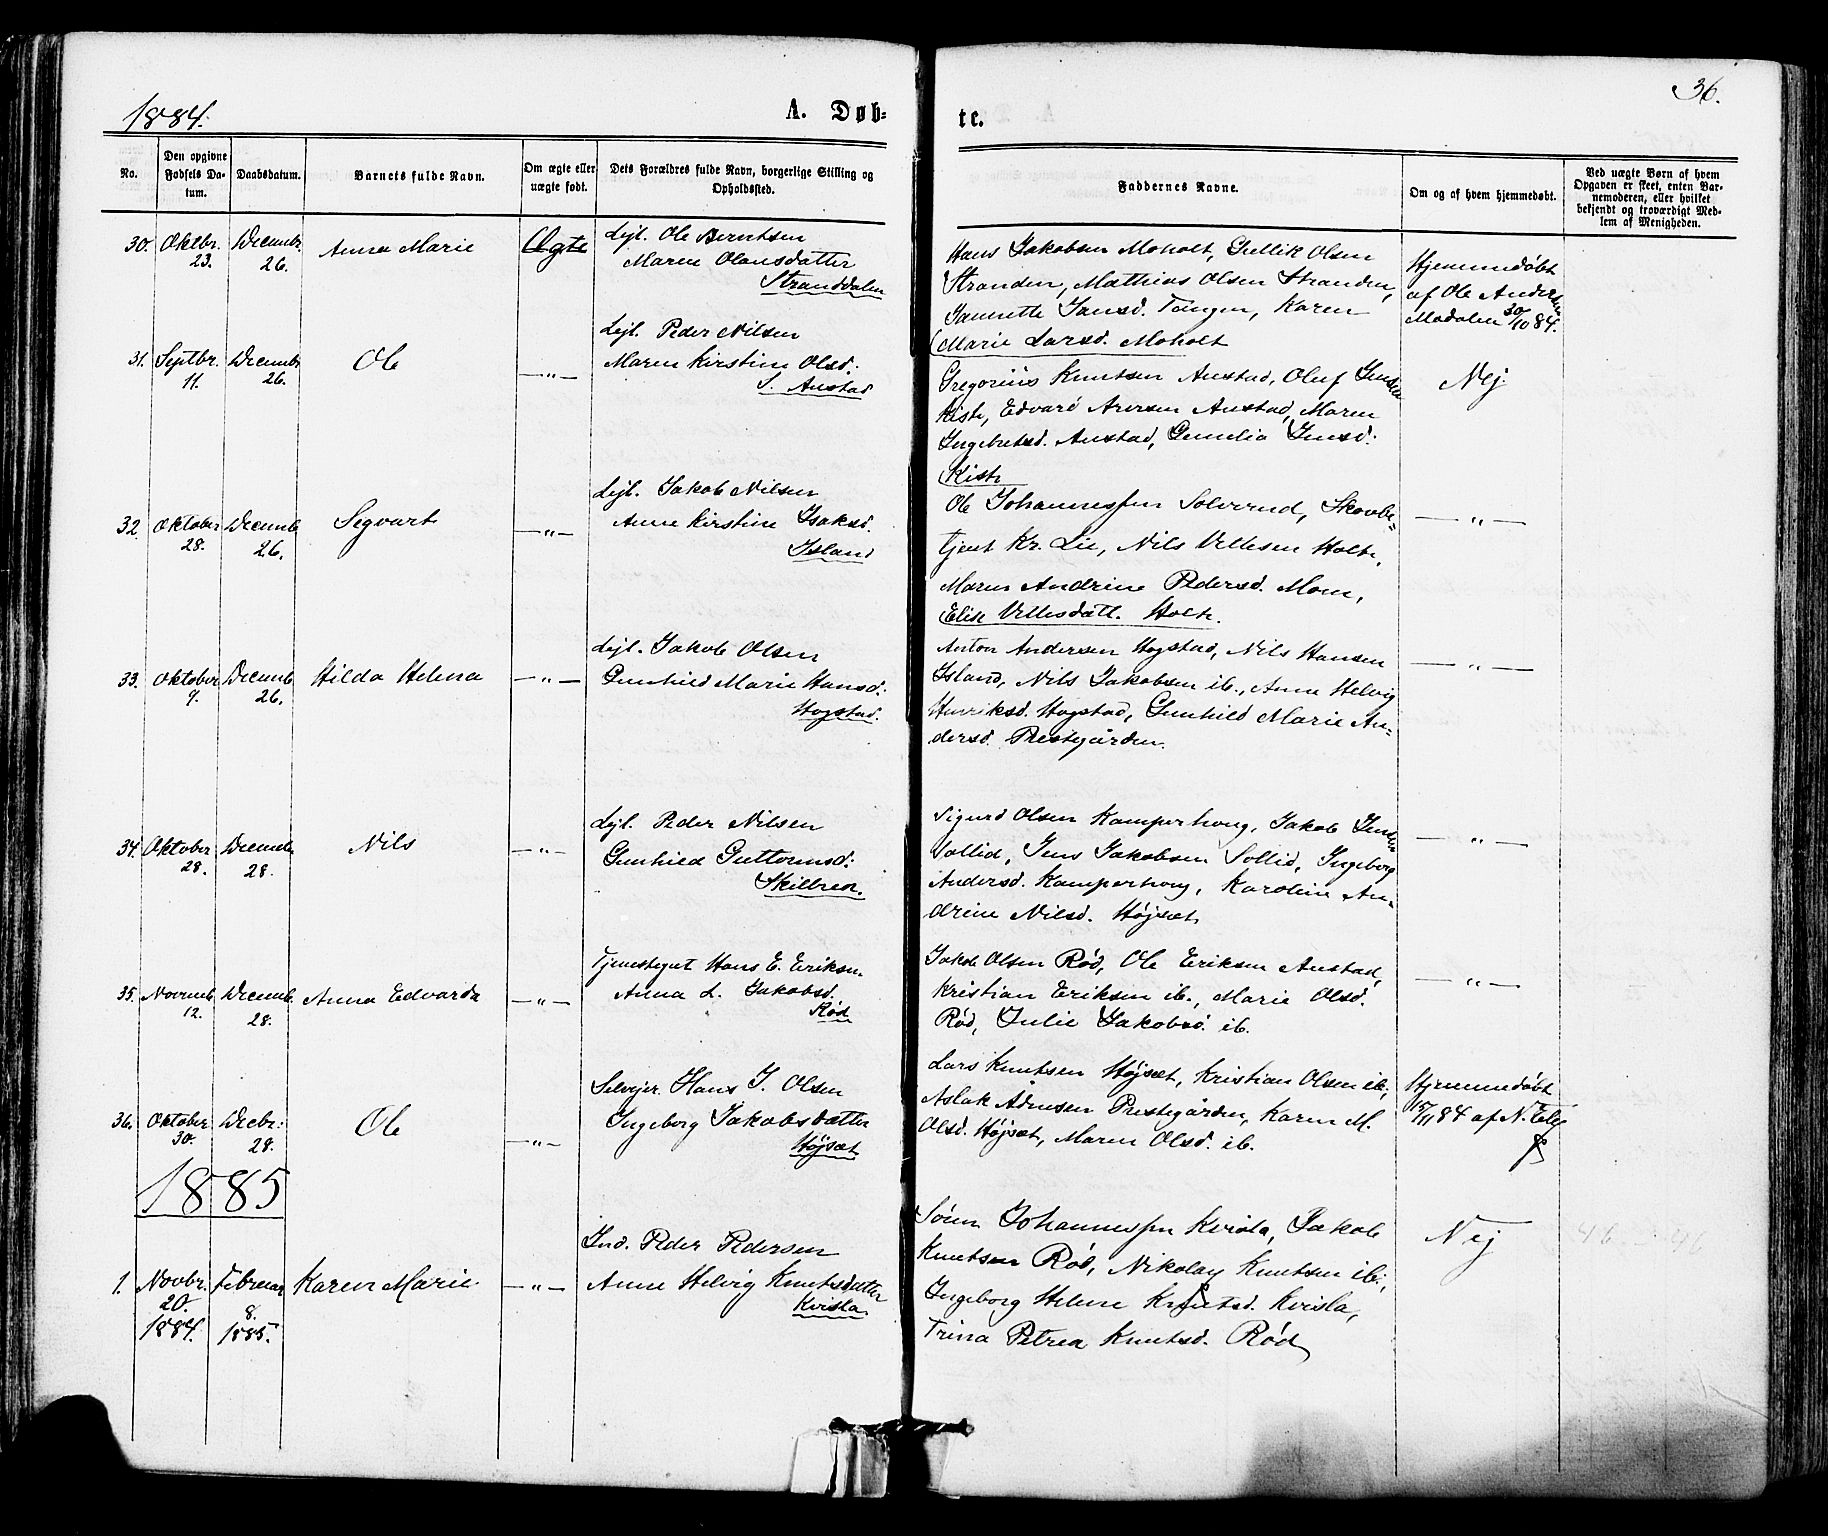 1884.
A. Døb=
te.
36.
No.
Den opgivne Fødsels Da-tum.
Daabsdatum.
Barnets fulde Navn.
Om ægte eller uægte født.
Dets Forældres fulde Navn, borgerlige Stilling og Opholdssted.
Faddernes Navne.
Om og af hvem hjemmedøbt.
Ved uægte Børn af hvem Opgaven er skeet, enten Bar-nemoderen, eller hvilket bekjendt og troværdigt Med-lem af Menigheden.
30. Oktbr. 23. Decembr. 26. Anna Marie Ægte
Lejl. Ole Berntsen
Maren Olausdatter
Stranddalen
Hans Jakobsen Moholt, Gullik Olsen
Stranden, Mathias Olsen Stranden,
Jansd. Tangen, Karen
Marie Larsd. Moholt
Hjemmedøbt
af Ole Anders
Modalen 30/10 84.
31. Septbr. 11. Decembr. 26. Ole —„—
Lejl. Peder Nilsen
Maren Kirstine Olsd.
S. Austad
Gregorius Knutsen Austad, Oluf Jensen
Kiste, Edvard Aresen Austad, Maren
Ingebretsd. Austad, Jensd.
Kiste
Nej.
32. Oktober 28. Decemb. 26. Segvart —„—
Lejl. Jakob Nilsen
Anne Kirstine Isaksd.
Island
Ole Johannessen Solverud, Skovbe-
tjent Kr. Lie, Nils Vettesen Holte,
Maren Andrine Pedersd. Moen,
Elise Vettesdatt. Holte.
—„—
33. Oktober 9. Decemb. 26. Hilda Helena —„—
Lejl. Jakob Olsen
Gunhild Marie Hansd.
Hogstad.
Anton Andersen Hogstad, Nils Hansen
Island, Nils Jakobsen ib., Anne Helvig
Henriksd. Hogstad, Gunhild Marie An-
dersd. Prestegården.
—„—
34. Oktober 28. Decemb. 28. Nils —„—
Lejl. Peder Nilsen
Gunhild Guttormsd.
Skilbred.
Sigurd Olsen Kamperhoug, Jakob Jensen
Sollid, Jens Jakobsen Sollid, Ingeborg
Andersd. Kamperhoug, Karoline An-
drine Nilsd. Højset.
—„—
35. Novemb. 12. Decemb. 28. Anna Edvarda —„—
Tjenestegut Hans E. Eriksen
Anna L. Jakobsd.
Rød
Jakob Olsen Rød, Ole Eriksen Austad,
Kristian Eriksen ib., Marie Olsd.
Rød, Julie Jakobsd. ib.
—„—
36. Oktober 30. Decbr. 28. Ole —„—
Selvejer Hans J. Olsen
Ingeborg Jakobsdatter
Højset
Lars Knutsen Højset, Kristian Olsen ib.,
Aslak Ånensen Prestegården, Karen M.
Olsd. Højset, Maren Olsd. ib.
Hjemmedøbt
5/11 84 af N.
1885
1. Novbr. 20. 1884. Februar 8. 1885. Karen Marie —„—
Ind. Peder Pedersen
Anne Helvig Knutsdatter
Kvisla
Søren Johannessen Kvisla, Jakob
Knutsen Rød, Nikolay Knutsen ib.,
Ingeborg Helene Knutsd. Kvisla,
Trina Petrea Knutsd. Rød
Nej